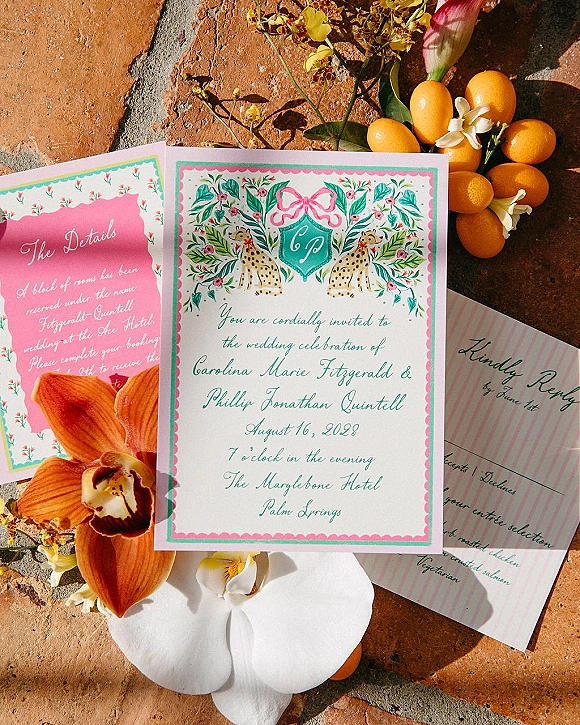 The Details
A block of rooms has been
reserved under the name
Fitzgerald-Quintell
wedding at the Ace Hotel.
Please complete your booking
to receive the
C P
You are cordially invited to
the wedding celebration of
Carolina Marie Fitzgerald &
Phillip Jonathan Quintell
August 16, 2028
7 o'clock in the evening
The Marylebone Hotel
Palm Springs
Kindly Reply
by June 1st
| Declines
your entrée selection
roasted chicken
crusted salmon
Vegetarian